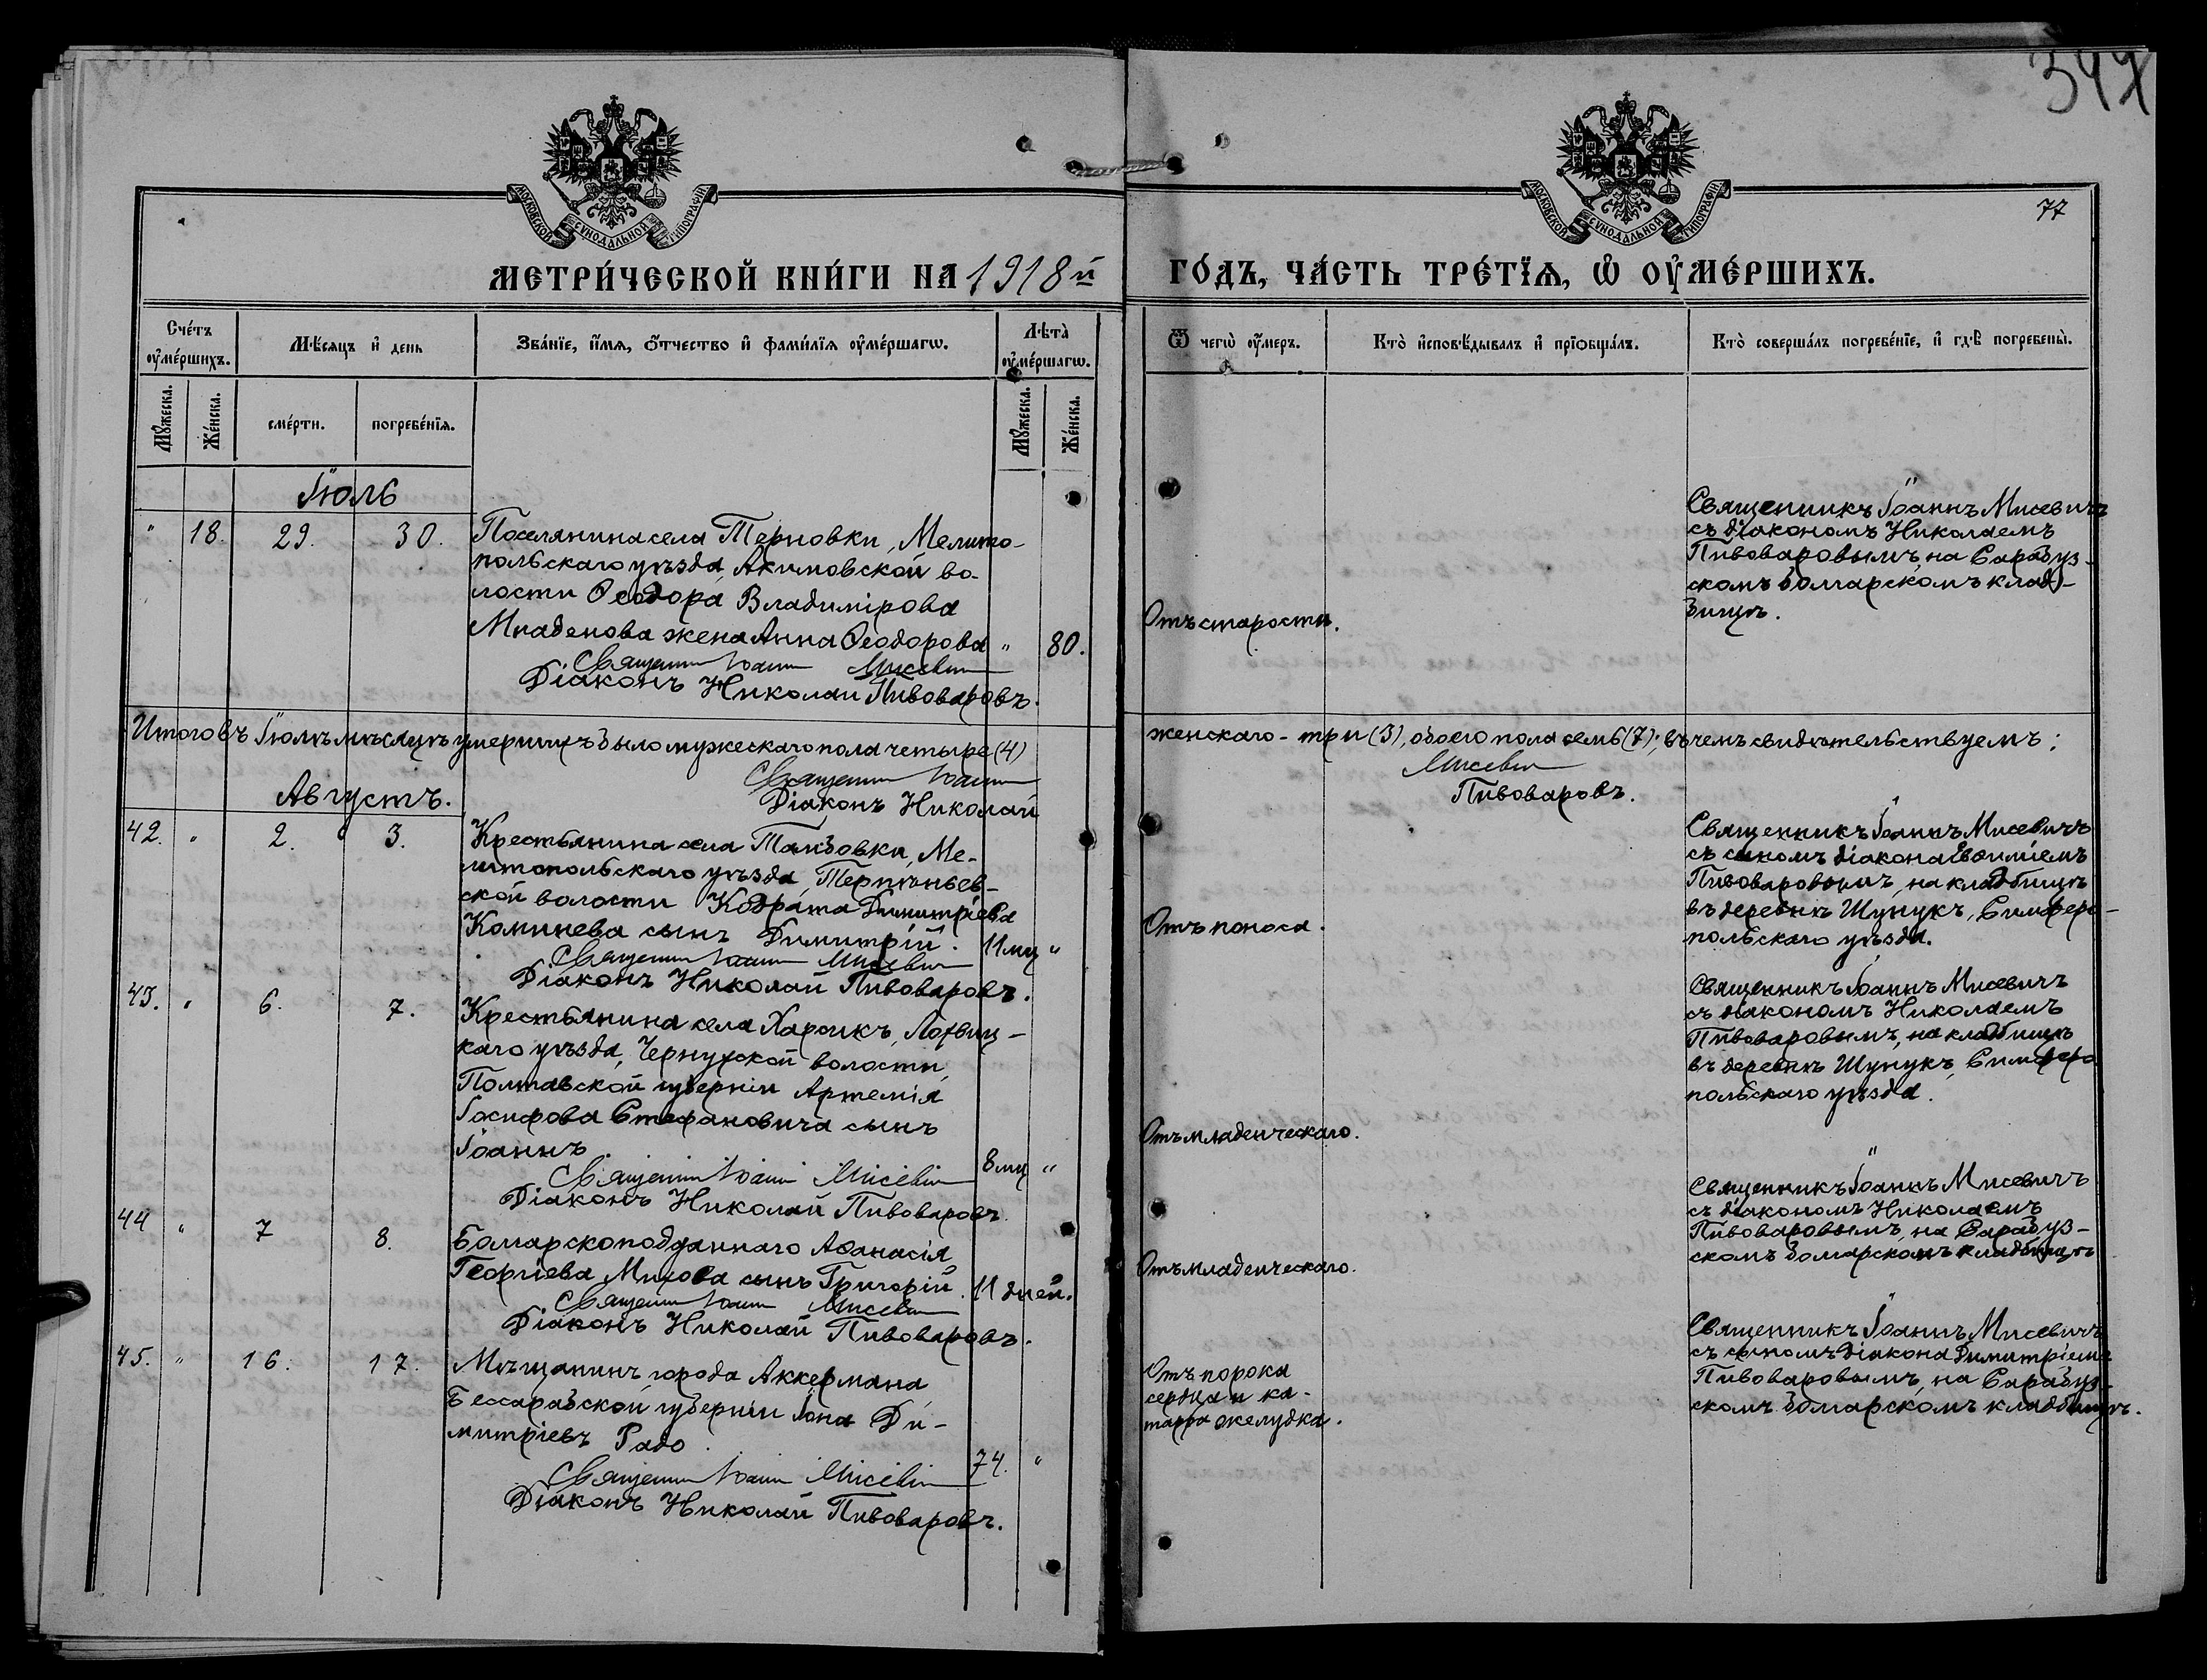 347
77
МОСКОВСКОЙ СѴНОДАЛЬНОЙ ТИПОГРАФІИ
МОСКОВСКОЙ СѴНОДАЛЬНОЙ ТИПОГРАФІИ
МЕТРИ́ЧЕСКОЙ КНИ́ГИ НА 1918й
ГО́ДЪ, ЧА́СТЬ ТРЕ́ТЇѦ, Ѡ҆ ОУ҆МЕ́РШИХЪ.
Сче́тъ оу҆ме́ршихъ.
Мѣ́сяцъ и҆ день
Зва́нїе, и҆́мѧ, ѻ҆́тчество и҆ фами́лїѧ оу҆ме́ршагѡ.
Лѣ́та оу҆ме́ршагѡ.
Ѿ чегѡ̀ оу҆́меръ.
Кто̀ и҆сповѣ́дывалъ и҆ прїѻбща́лъ.
Кто̀ соверша́лъ погребе́нїе, и҆ гдѣ̀ погребены̀.
Мꙋ́жеска.
Же́нска.
сме́рти.
погребе́нїѧ.
Мꙋ́жеска.
Же́нска.
Іюль
" 18. 29. 30.
Поселянина села Терновки, Мелито-
польскаго уѣзда, Акимовской во-
лости Ѳеодора Владимірова
Младенова жена Анна Ѳеодорова " 80.
Священникъ Іоаннъ Мисевичъ
Діаконъ Николай Пивоваровъ.
Отъ старости.
Священникъ Іоаннъ Мисевичъ
съ діакономъ Николаемъ
Пивоваровымъ, на Сарабуз-
скомъ болгарскомъ клад-
бищѣ.
Итого въ Іюлѣ мѣсяцѣ умершихъ было мужескаго пола четыре (4)
женскаго - три (3), обоего пола семь (7); въ чемъ свидѣтельствуемъ:
Священникъ Іоаннъ
Мисевичъ
Діаконъ Николай
Пивоваровъ.
Августъ.
42. " 2. 3.
Крестьянина села Тамбовки, Ме-
литопольскаго уѣзда, Терпѣньев-
ской волости Кодрата Димитріева
Каминева сынъ Димитрій. 11 мц "
Священникъ Іоаннъ Мисевичъ
Діаконъ Николай Пивоваровъ.
Отъ поноса.
Священникъ Іоаннъ Мисевичъ
съ сыномъ діакона Евѳиміемъ
Пивоваровымъ, на кладбищѣ
въ деревнѣ Шунукъ, Симферо-
польскаго уѣзда.
43. " 6. 7.
Крестьянина села Харсикъ, Лохвиц-
каго уѣзда, Чернухской волости,
Полтавской губерніи Артемія
Іосифова Стефановича сынъ
Іоаннъ. 8 мц "
Священникъ Іоаннъ Мисевичъ
Діаконъ Николай Пивоваровъ.
Отъ младенческаго.
Священникъ Іоаннъ Мисевичъ
съ діакономъ Николаемъ
Пивоваровымъ, на кладбищѣ
въ деревнѣ Шунукъ, Симферо
польскаго уѣзда.
44 " 7 8.
Болгарскоподданнаго Аѳанасія
Георгіева Михова сынъ Григорій. 11 дней.
Священникъ Іоаннъ Мисевичъ
Діаконъ Николай Пивоваровъ.
Отъ младенческаго.
Священникъ Іоаннъ Мисевичъ
съ діакономъ Николаемъ
Пивоваровымъ, на Сарабуз-
скомъ болгарскомъ кладбищѣ
45. " 16. 17.
Мѣщанинъ города Аккермана
Бессарабской губерніи Іона Ди-
митріевъ Радо. 74. "
Священникъ Іоаннъ Мисевичъ
Діаконъ Николай Пивоваровъ.
Отъ порока
сердца и ка-
тарра желудка.
Священникъ Іоаннъ Мисевичъ
съ сыномъ діакона Димитріемъ
Пивоваровымъ, на Сарабуз-
скомъ болгарскомъ кладбищѣ.